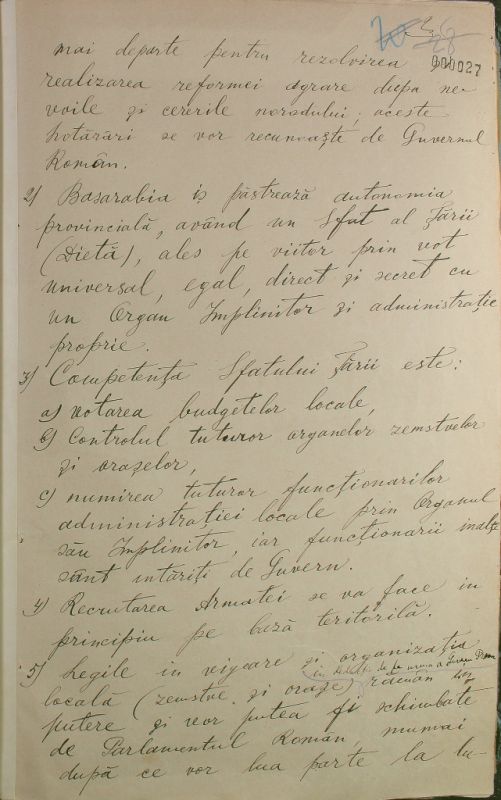 000027
mai departe pentru rezolvirea și
realizarea reformei agrare dupa ne-
voile și cererile norodului; aceste
hotărâri se vor recunoaște de Guvernul
Român.
2) Basarabia iș păstrează autonomia
provincială, având un Sfat al Țării
(Dietă), ales pe viitor prin vot
universal, egal, direct și secret cu
un Organ Implinitor și administrație
proprie.
3) Competența Sfatului Țării este:
a) votarea budgetelor locale,
b) Controlul tuturor organelor zemstvelor
și orașelor,
c) numirea tuturor funcționarilor
administrației locale prin Organul
său Implinitor, iar funcționarii înalți
sânt întăriți de Guvern.
4) Recrutarea Armatei se va face in
principiu pe bază teritorilă.
5) Legile in vigoare și organizația
locală (zemstve și orașe) rămân in
putere și vor putea fi schimbate
de Parlamentul Român numai
după ce vor lua parte la lu-